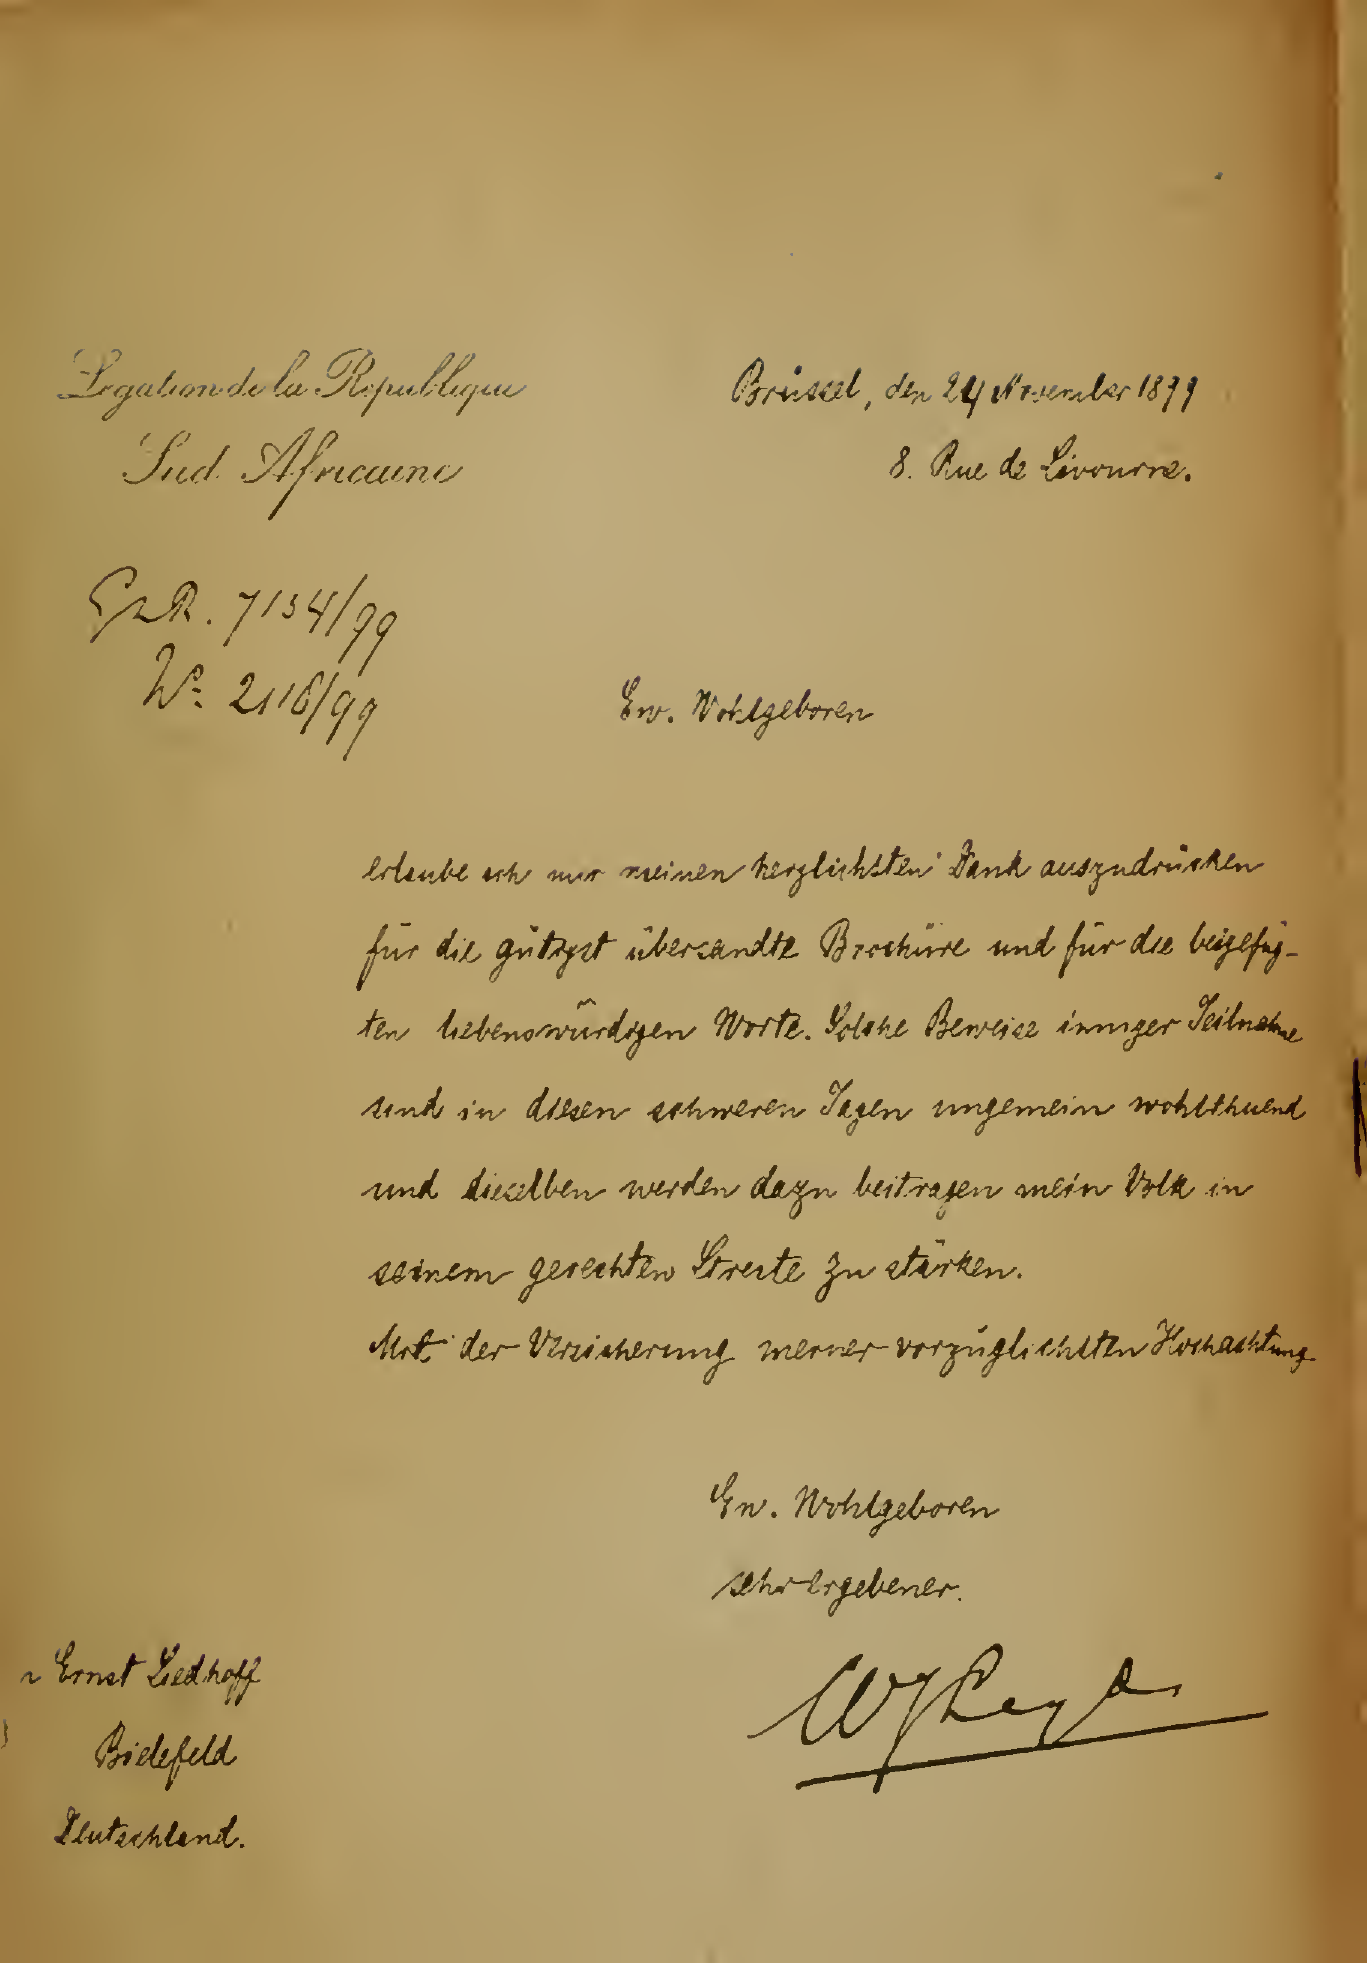 Legation de la République
Sud Africaine
Brüssel, den 24 November 1899
8. Rue de Livourne.
GzR. 7134/99
No. 2116/99
Ew. Wohlgeboren
erlaube ich mir meinen herzlichsten Dank auszudrücken
für die gütigst übersandte Brochüre und für die beigefüg-
ten liebenswürdigen Worte. Solche Beweise inniger Teilnahme
sind in diesen schweren Tagen ungemein wohlthuend
und dieselben werden dazu beitragen mein Volk in
seinem gerechten Streite zu stärken.
Mit der Versicherung meiner vorzüglichsten Hochachtung
Ew. Wohlgeboren
sehr ergebener.
WJLeyds
Ernst Siedhoff
Bielefeld
Deutschland.